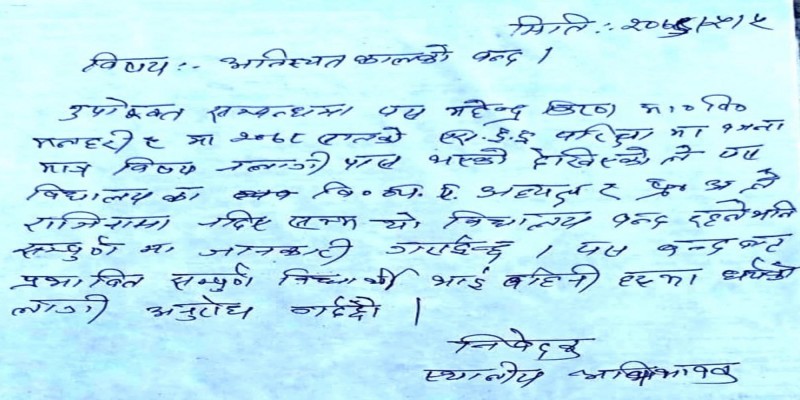 मिति:- २०७५/५/५
विषय:- अनिश्चित कालको बन्द ।
उपरोक्त सम्बन्धमा यस महेन्द्र मा०वि०
मनहरी ९ मा २०७८ सालको एस.ई.ई परिक्षा मा १ जना
मात्र विषय नलागी पास भएको देखिएको ले यस
विद्यालय का वि.व्य.स. अध्यक्ष र प्र अ ले
राजिनामा नदिए सम्म यो विद्यालय बन्द रहने भनि
सम्पुर्ण मा जानकारी गराईन्छ । यस बन्द बाट
प्रभावित सम्पुर्ण विद्यार्थी भाई बहिनी हरुमा धर्यको
लागी अनुरोध गर्दछौ ।
निवेदक
स्थानीय अभिभावक